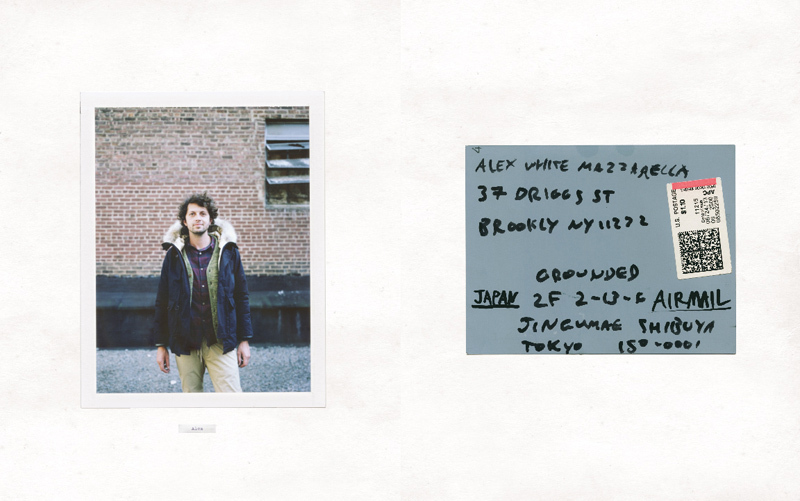 Alex
ALEX WHITE MAZZARELLA
37 DRIGGS ST
BROOKLY NY 11222
GROUNDED
JAPAN 2F 2-13-6 AIRMAIL
JINGUMAE SHIBUYA
TOKYO 150-0001
U.S. POSTAGE
$1.10
11215